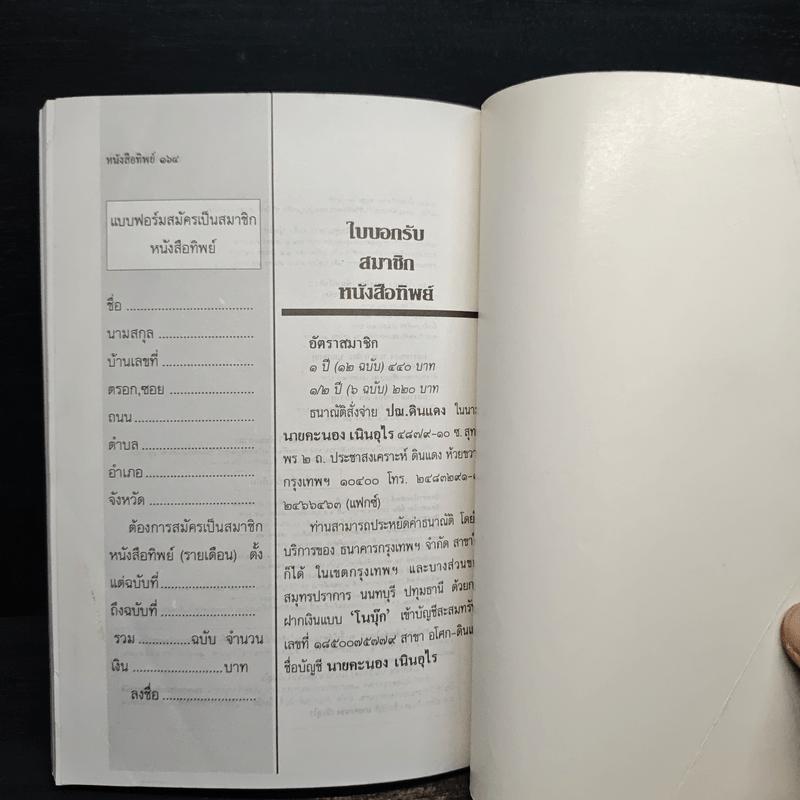 หนังสือทิพย์ ๑๖๔
แบบฟอร์มสมัครเป็นสมาชิก
หนังสือทิพย์
ชื่อ
นามสกุล
บ้านเลขที่
ตรอก,ซอย
ถนน
ตำบล
อำเภอ
จังหวัด
ต้องการสมัครเป็นสมาชิก
หนังสือทิพย์ (รายเดือน) ตั้ง
แต่ฉบับที่
ถึงฉบับที่
รวม..............ฉบับ จำนวน
เงิน........................บาท
ลงชื่อ
ใบบอกรับ
สมาชิก
หนังสือทิพย์
อัตราสมาชิก
๑ ปี (๑๒ ฉบับ) ๔๔๐ บาท
๑/๒ ปี (๖ ฉบับ) ๒๒๐ บาท
ธนาณัติสั่งจ่าย ปณ.ดินแดง ในนา
นายคะนอง เนินอุไร ๔๘๗/๙-๑๐ ซ. สุท
พร ๒ ถ. ประชาสงเคราะห์ ดินแดง ห้วยขวา
กรุงเทพฯ ๑๐๔๐๐ โทร. ๒๔๘๓๒๙๑-
๒๔๖๖๔๖๓ (แฟกซ์)
ท่านสามารถประหยัดค่าธนาณัติ โดยใ
บริการของ ธนาคารกรุงเทพฯ จำกัด สาขา
ก็ได้ ในเขตกรุงเทพฯ และบางส่วนขอ
สมุทรปราการ นนทบุรี ปทุมธานี ด้วยก
ฝากเงินแบบ 'โนบุ๊ก' เข้าบัญชีสะสมทรั
เลขที่ ๑๘๕๐๐๗๕๗๗๙ สาขา อโศก-ดินแ
ชื่อบัญชี นายคะนอง เนินอุไร